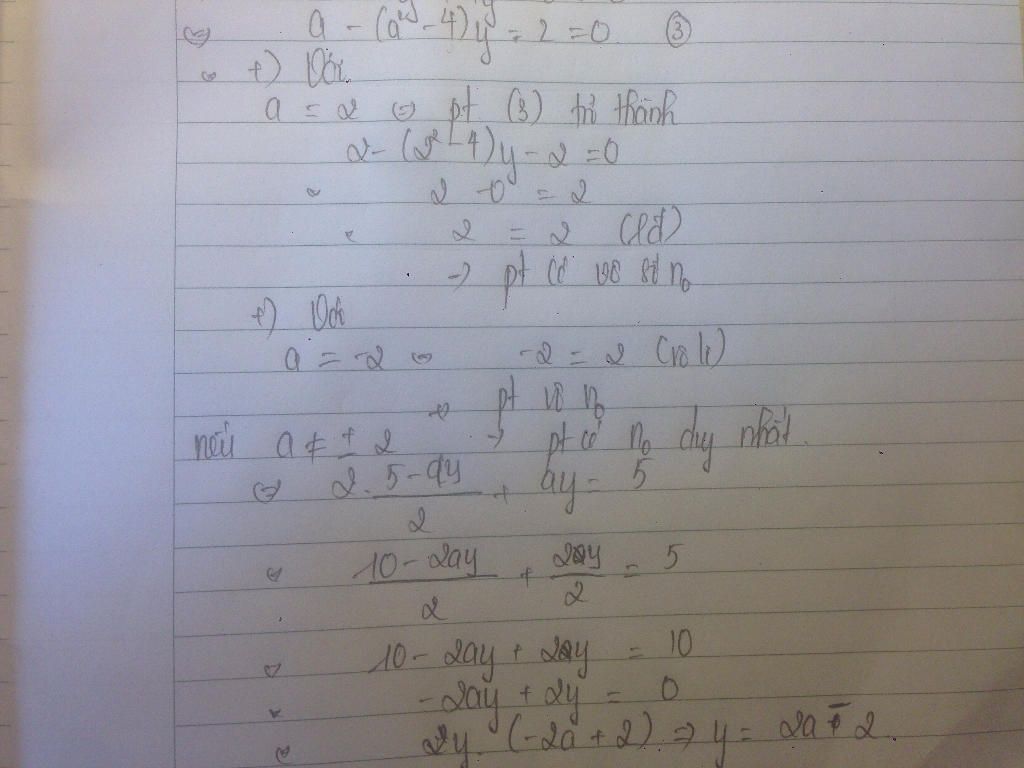 ⇔ a - (a² - 4)y = 2 = 0 ③
+) Với
a = 2 ⇔ pt (3) trở thành
2 - (2² - 4)y - 2 = 0
⇔ 2 - 0 = 2
⇔ 2 = 2 (lđ)
→ pt có vô số n₀
+) Với
a = -2 ⇔ -2 = 2 (vô lí)
⇒ pt vô n₀
nếu a ≠ ± 2 → pt có n₀ duy nhất.
⇔ 2. (5 - ay)/2 + ay = 5
⇔ (10 - 2ay)/2 + 2ay/2 = 5
⇔ 10 - 2ay + 2ay = 10
⇔ -2ay + 2y = 0
⇔ 2y. (-2a + 2) ⇒ y = 2a - 2.